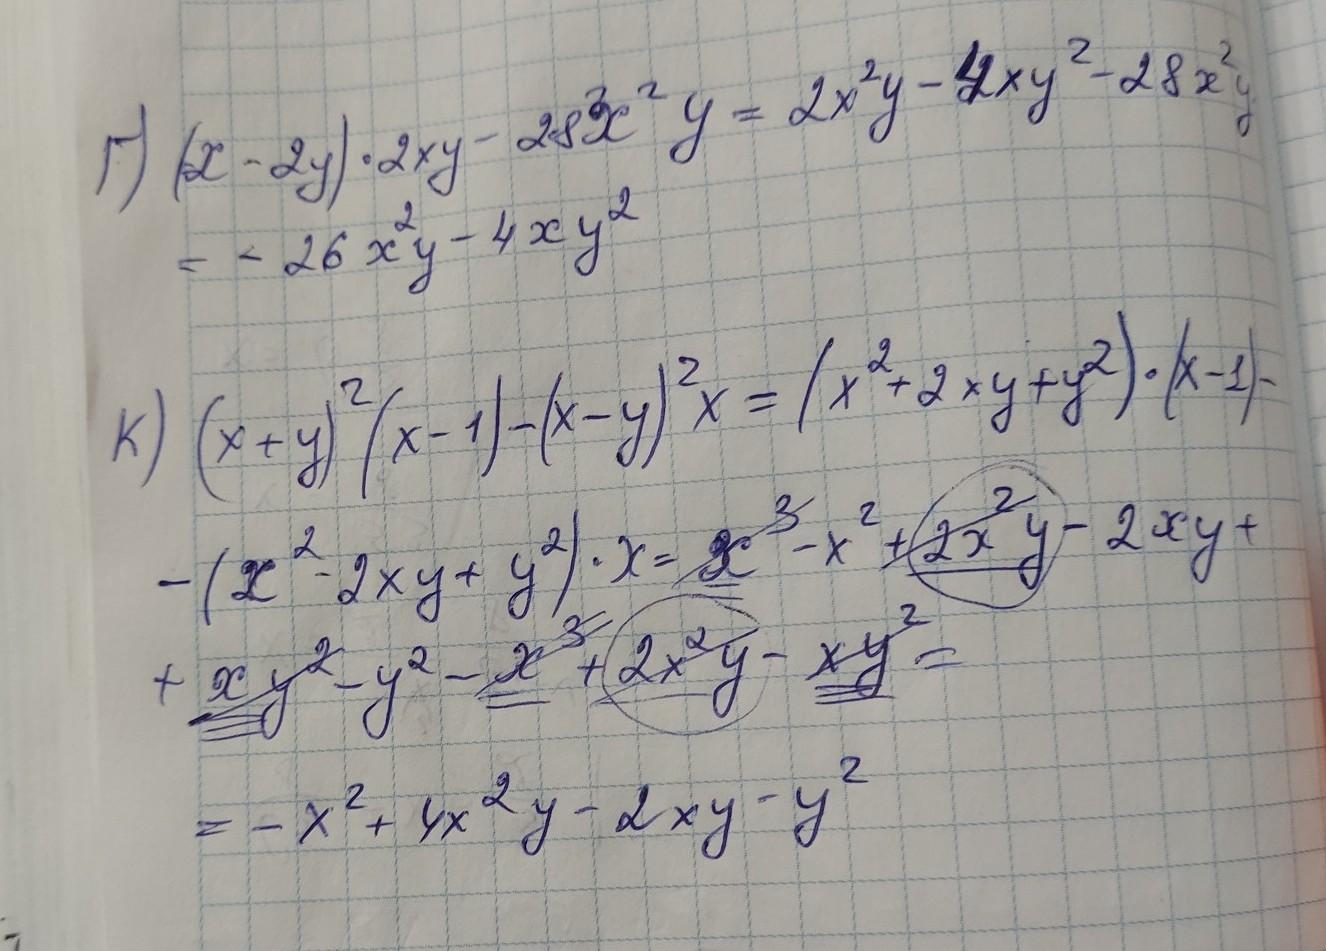 Г) (x - 2y) · 2xy - 28x² y = 2x²y - 4xy² - 28x²y
= - 26x²y - 4xy²
К) (x+y)²(x-1)-(x-y)²x = (x²+2xy+y²)·(x-1)-
-(x²-2xy+y²)·x = x³-x²+2x²y-2xy+
+xy²-y²-x³+2x²y-xy²=
= -x²+4x²y-2xy-y²